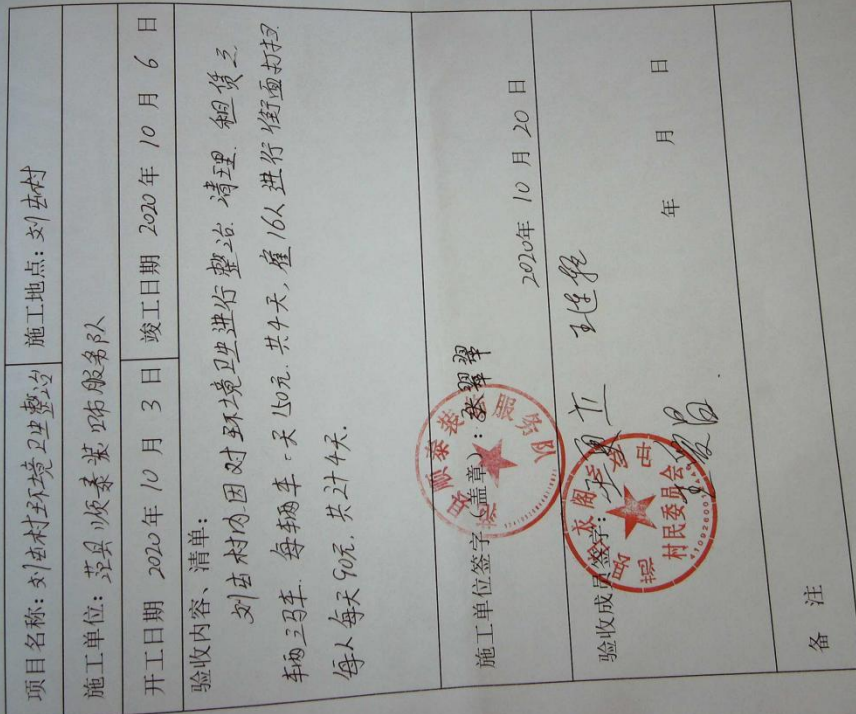 项目名称：刘庄村环境卫生整治 施工地点：刘庄村
施工单位：范县顺泰装饰服务队
开工日期 2020年10月3日 竣工日期 2020年10月6日
验收内容、清单：
刘庄村内因对环境卫生进行整治.清理.租赁三
辆三马车.每辆车一天150元.共4天,雇16人进行街面打扫
每人每天90元.共计4天.
施工单位签字（盖章）：张翠翠
顺泰装 服务队
2020年10月20日
验收成员签字：
村民委员会
年 月 日
备 注